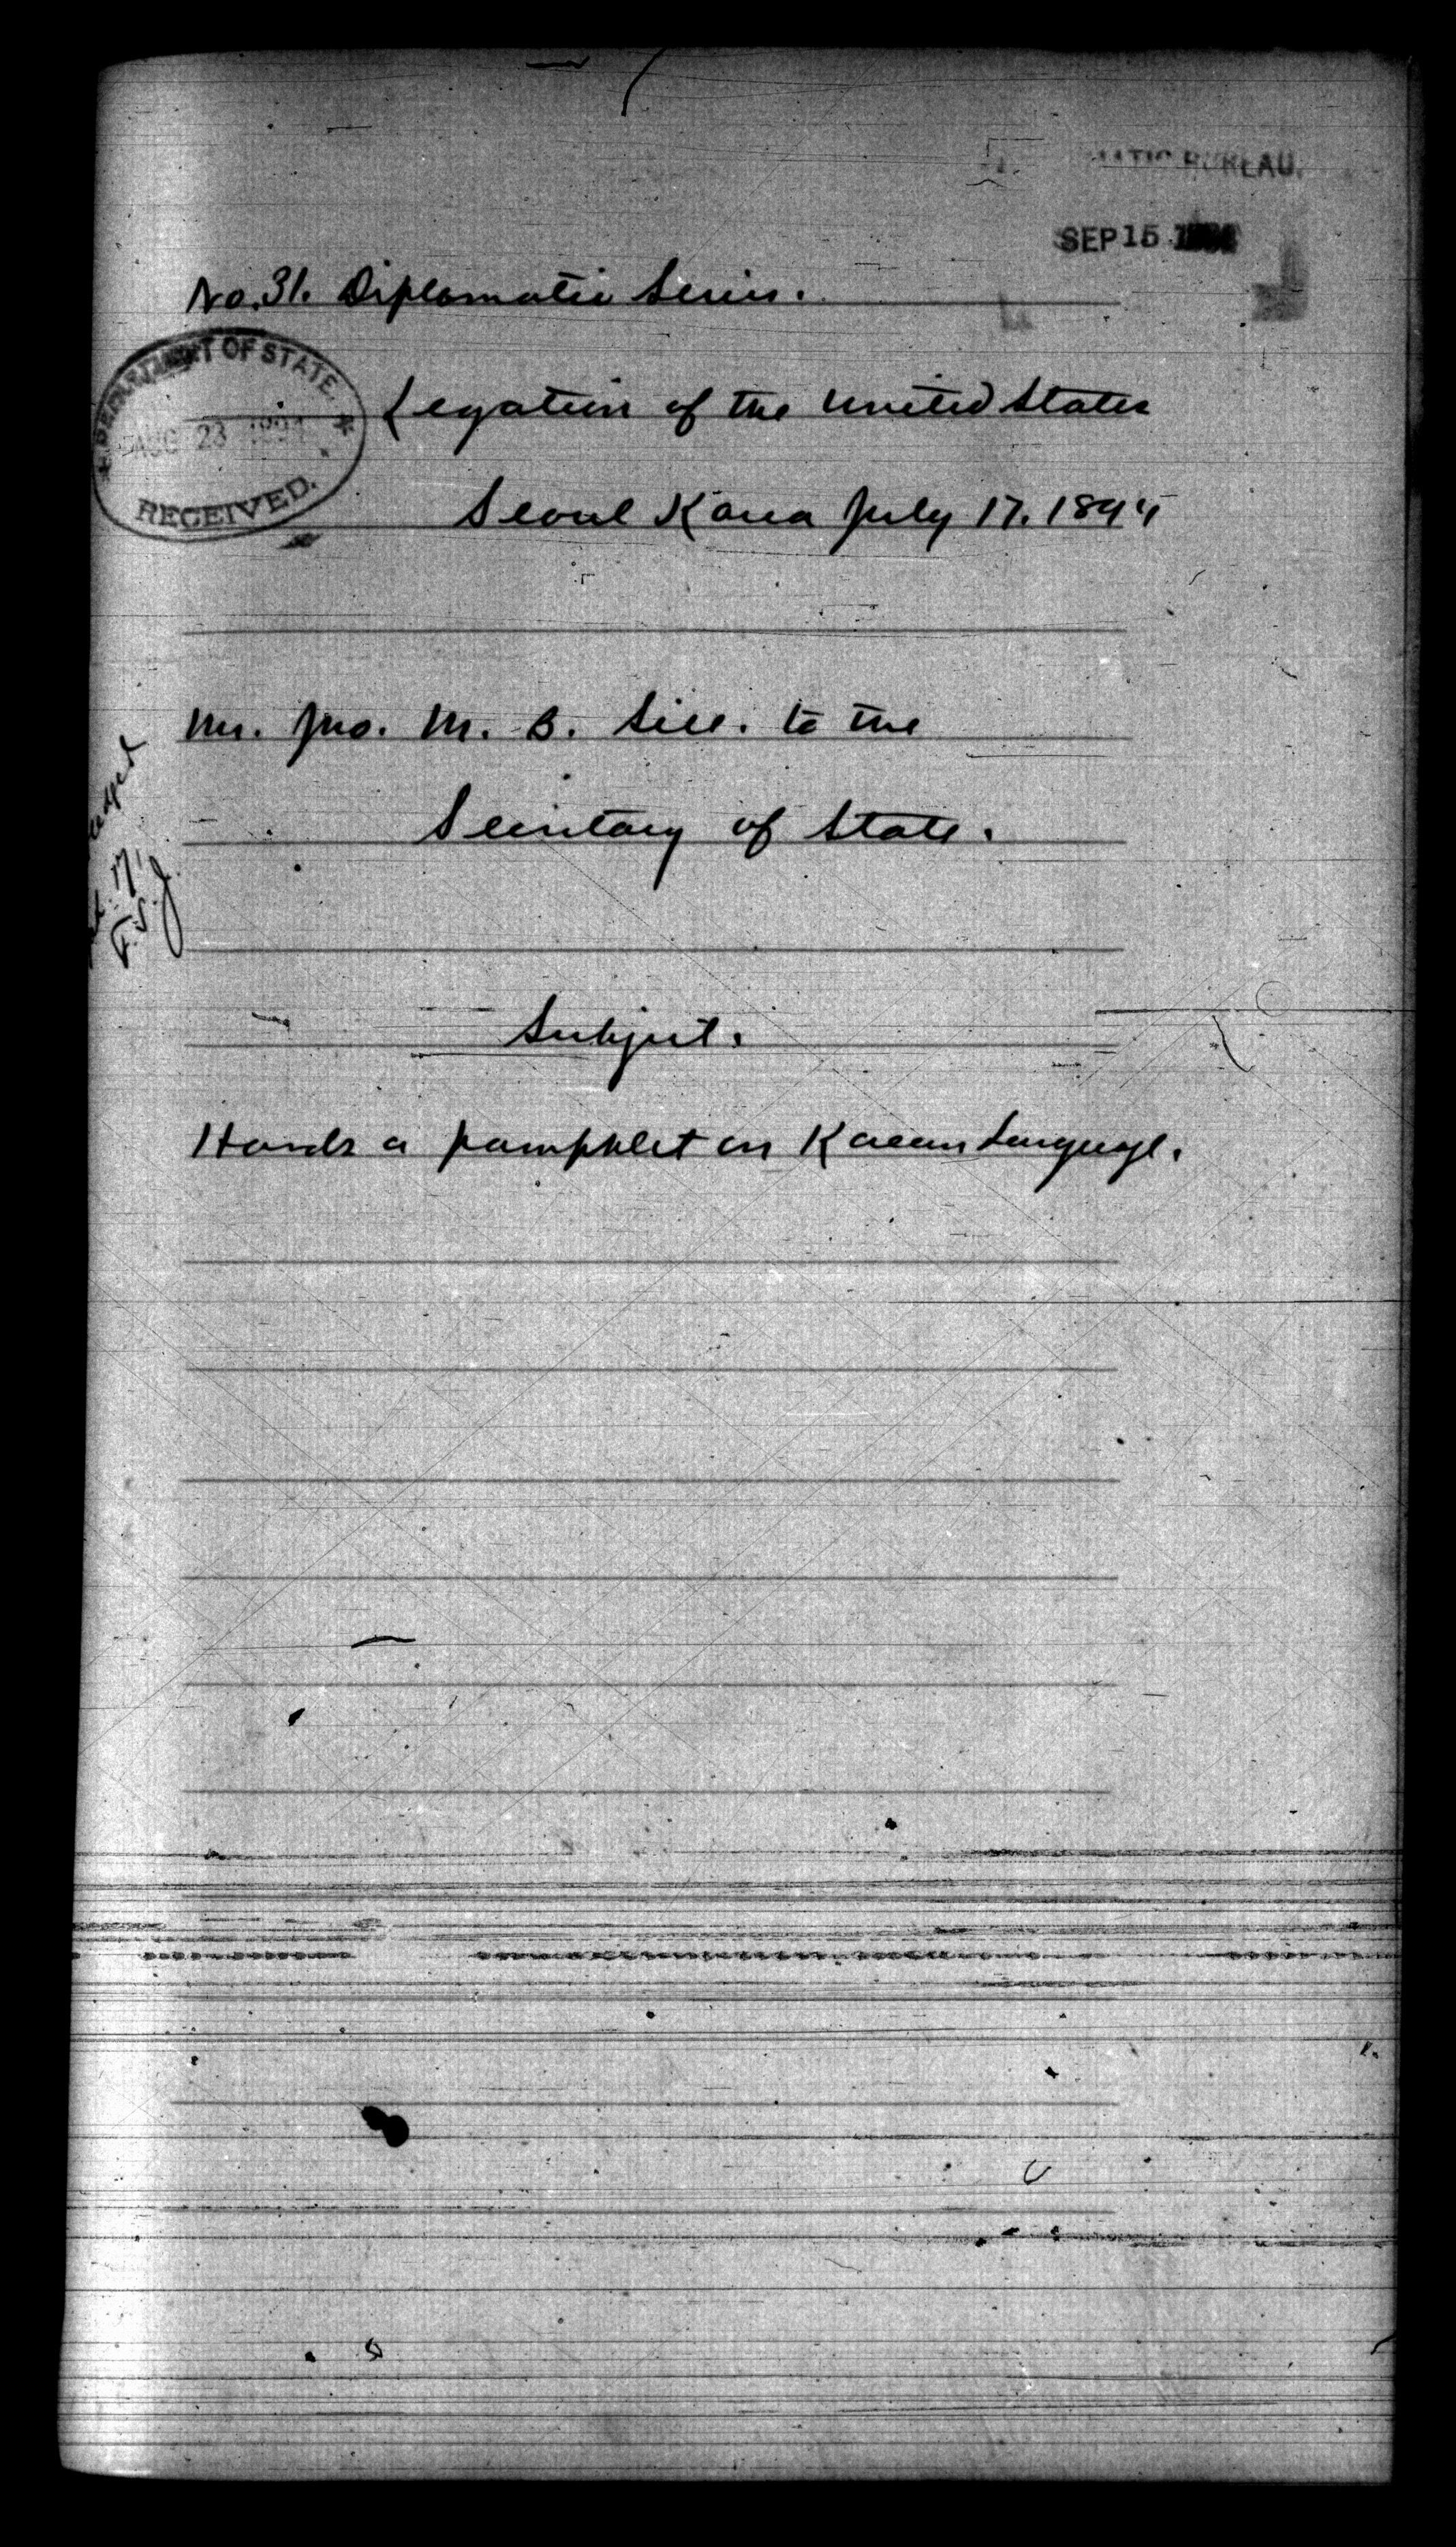 BUREAU.
SEP 15
No. 31. Diplomatic Series.
DEPARTMENT OF STATE.
AUG 23 1894
RECEIVED.
Legation of the United States
Seoul Korea July 17. 1894
Mr. Jno. M. B. Sill. to the
Secretary of State.
17
F.S.J.
Subject.
Hands a pamphlet on Korean Language.